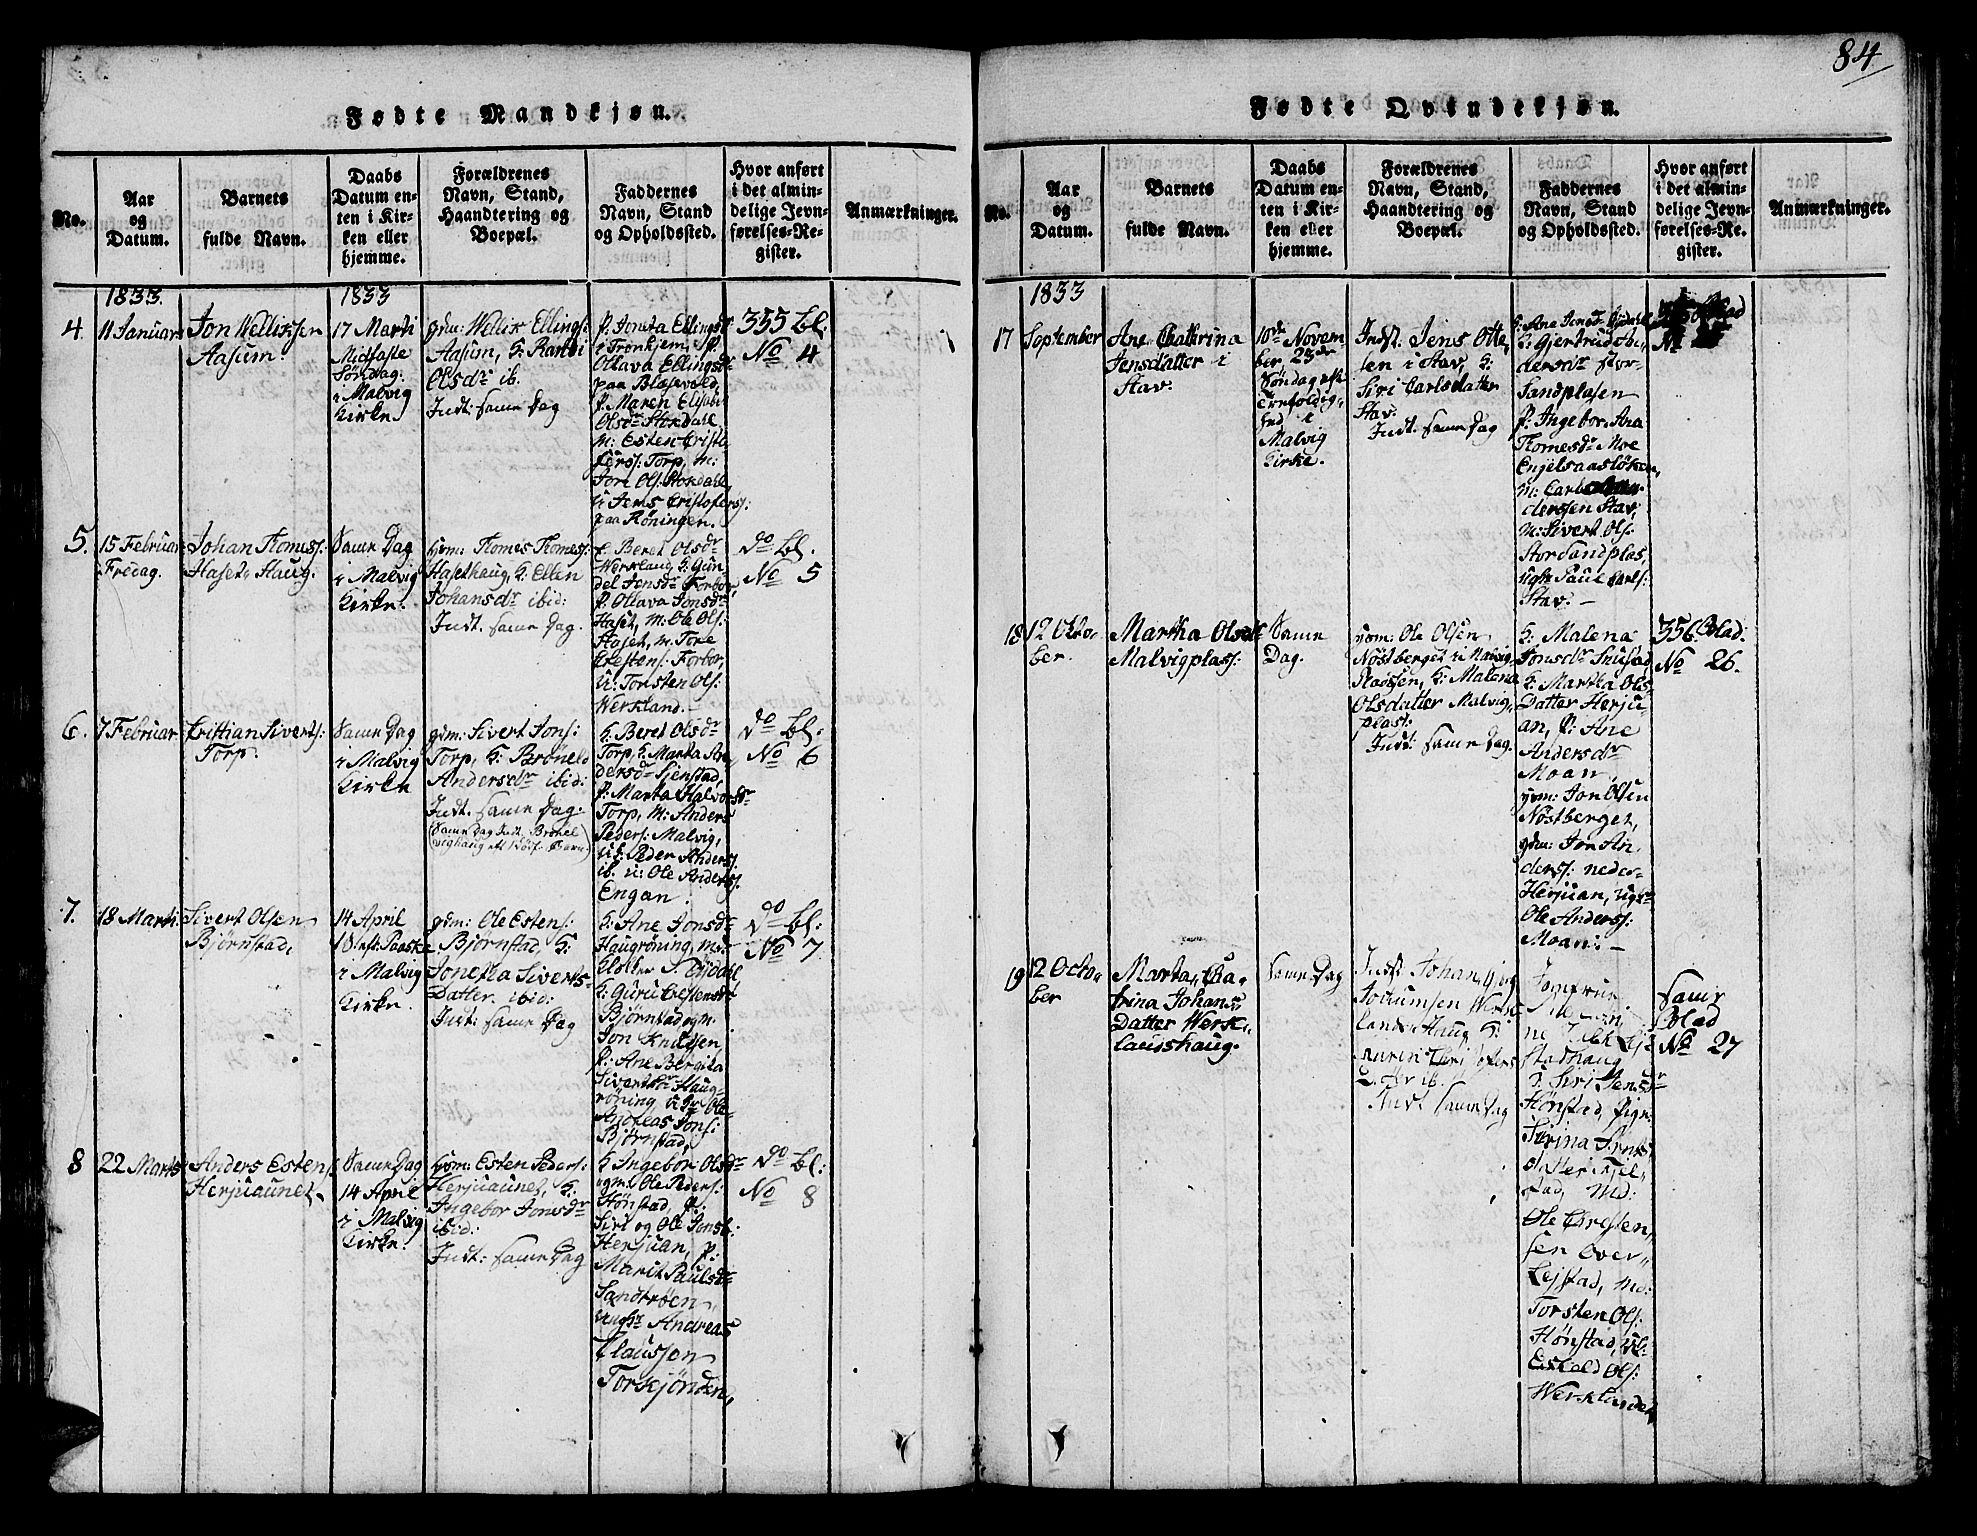 84
Fødte Mandkjøn.
No.
Aar
og
Datum.
Barnets
fulde Navn.
Daabs
Datum en-
ten i Kir-
ken eller
hjemme.
Forældrenes
Navn, Stand,
Haandtering og
Boepæl.
Faddernes
Navn, Stand
og Opholdssted.
Hvor anført
i det almin-
delige Jevn-
førelses-Re-
gister.
Anmærkninger.
1833.
1833
4
11 Januar
Jon Wellixsen
Aasum.
17 Marti
Midfaste
Søndag.
i Malvig
Kirke
gdm: Wellix Ellings:
Aasum, k: Randi
Olsdr ib.
Indt: samme Dag
P. Joneta Ellingsdr
i Tronhjem, P.
Ollava Ellingsdr
paa Blæsevold,
P. Maren Elisab:
Olsdr Stordahl
m: Esten Cristo
fers: Torp, m:
Jon Ols: Stordahl,
u: Jens Cristofers:
paa Røningen.
355 bl:
No 4
5.
15 Februar
Fredag.
Johan Thomess:
Haset-Haug.
Samme Dag
i Malvig
Kirke.
hom: Thomes Thomess:
Hasethaug, k: Ellen
Johansdr ibid:
Indt. samme Dag.
k: Beret Olsdr
Werkland, k: Gun
del Jonsdr Forbor,
P. Ollava Jonsdr
Haset, m: Ole Ols:
Haset, m: Tore
Crestens: Forbor,
u: Torsten Ols:
Werkland.
do bl.
No 5
6.
7 Februar
Cristian Siverts:
Torp.
Samme Dag
i Malvig
Kirke
gdm: Sivert Jons:
Torp, k: Brøneld
Andersdr ibid:
Indt: samme Dag.
k: Beret Olsdr
Torp, k: Marta An
dersdr Sienstad,
P: Marta Halvorsdr
Torp, m: Anders
Peders: Malvig,
u: Peder Anderss:
ib. u: Ole Anderss:
Engan.
do bl:
No 6
7.
18 Marti
Sivert Olsen
Bjørnstad,
14 April
i Malvig
Kirke.
gdm: Ole Estens:
Bjørnstad, k:
Jonetta Siverts-
Datter ibid:
Indt: samme Dag
k: Ane Jonsdr
Haugrøning, m:
k: Guru Crestensdr
Bjørnstad, gm.
Jon Knudsen
P: Ane Bergita
Sivertsdr Haug-
røning u gr Ole
Andreas Jons:
Bjørnstad,
do bl:
No 7
8
22 Marts
Anders Estens:
Herjuaunet
Samme Dag
14 April
i Malvig
Kirke.
hom: Esten Peders:
Herjuaunet, k:
Ingebor Jonsdr
ibid:
Indt: samme Dag
k: Ingebor Olsdr
gm: Ole Peders:
Hønstad, P:
Siri og Ole Jonsb:
Herjuan, P:
Marit Paulsdr
Sandtrøen,
ungkr Andreas
Claussen
Torskjønden,
do bl:
No 8
Fødte Qvindekjøn.
No.
Aar
og
Datum.
Barnets
fulde Navn.
Daabs
Datum en-
ten i Kir-
ken eller
hjemme.
Forældrenes
Navn, Stand,
Haandtering og
Boepæl.
Faddernes
Navn, Stand
og Opholdssted.
Hvor anført
i det almin-
delige Jevn-
førelses-Re-
gister.
Anmærkninger.
1833
17
September
Ane Chatrina
Jensdatter i
Stav.
10de Novem
ber, 23de
Søndag eft
Trefoldig-
hed i
Malvig
Kirke.
Indst. Jens Otte,
sen i Stav, k:
Siri Carlsdatter
Stav.
Indt. samme Dag
k: Gjertrud
dersdr Stor-
Sandplasen
P. Ingebor Ana
Thomesdr Moe
Engelsaasløken,
m: Carl
derssen Stav,
m: Sivert Ols:
Storsandplas,
ugkr Paul Carls:
Stav. –
18
12 Okto-
ber.
Martha Olsdr
Malvigplass:
Samme
Dag.
hom: Ole Olsen
Nøstberget i Malvig-
pladsen, k: Malena
Olsdatter Malvig,
plass:
Indt: samme Dag.
k: Malena
Jonsdr Snustad
k: Martha Ols-
Datter Herju-
an, P: Ane
Andersdr
Moan,
hom: Jon Olsen
Nøstberget,
gdm: Jon An-
derss: neder-
Herjuan, ugkr
Ole Anderss:
Moan: –
356 Blad:
No 26.
19
12 Octo,,
ber
Marta Cha,,
trina Johans,,
Datter Werk,,
landshaug.
Samme Dag
Indst Johan
Joacumsen Werk
lands Haug k:
Maren Cristofers
Datter ib.
Indt samme Dag
Jomfrue
stadhaug
k: Siri Jensdr
Hønstad, Pige
datter
stad, Md:
Ole Chresten,,
sen Over,,
Lejstad, Md:
Torsten Ols:
Hønstad,
Eskeld Ols:
Werklandet
Samme
Blad
No 27